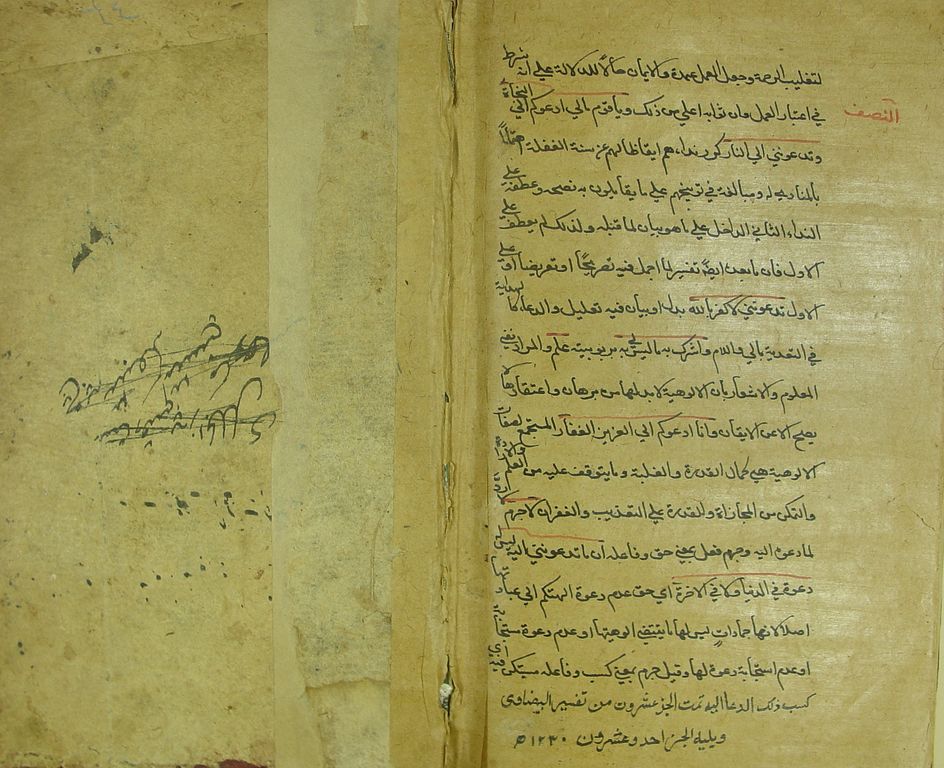 لتغليب الرحمة وجعل العمل عمدة والايمان حالا للدلالة علي انه شرط
في اعتبار العمل وان ثوابه اعلي من ذلك ويا قوم مالي ادعوكم الي النجاة
النصف
وتدعونني الي النار كرر نداءهم ايقاظا لهم عن سنة الغفلة اهتماما
بالمنادي له ومبالغة في توبيخهم علي ما يقابلون به نصحه وعطفه علي
النداء الثاني الداخل علي ما هو بيان لما قبله ولذلك لم يعطف علي
الاول فان ما بعده ايضا تفسير لما اجمل فيه تصريحا او تعريضا او علي
الاول تدعونني لاكفر بالله بدل او بيان فيه تعليل والدعاء كالهداية
في التعدية بالي واللام واشرك به ما ليس لي به بربوبيته علم والمراد نفي
المعلوم والاشعار بان الالوهية لا بد لها من برهان واعتقادها لا
يصح الا عن الايقان وانا ادعوكم الي العزيز الغفار المستجمع لصفات
الالوهية من كمال القدرة والغلبة وما يتوقف عليه من العلم والارادة
والتمكن من المجازاة والقدرة علي التعذيب والغفران لاجرم لا رد
لما دعوه اليه وجرم فعل بمعني حق وفاعله ان ما تدعونني اليه ليس له
دعوة في الدنيا ولا في الاخرة اي حق عدم دعوة الهتكم الي عبادتها
اصلا لانها جمادات ليس لها ما يقتضي الوهيتها او عدم دعوة مستجابة
او عدم استجابة دعوة لها وقيل جرم بمعني كسب وفاعله مستكن فيه اي
كسب ذلك الدعا اليه تمت الجز عشرون من تفسير البيضاوى
ويليه الجز احد وعشرون ١٢٣٠